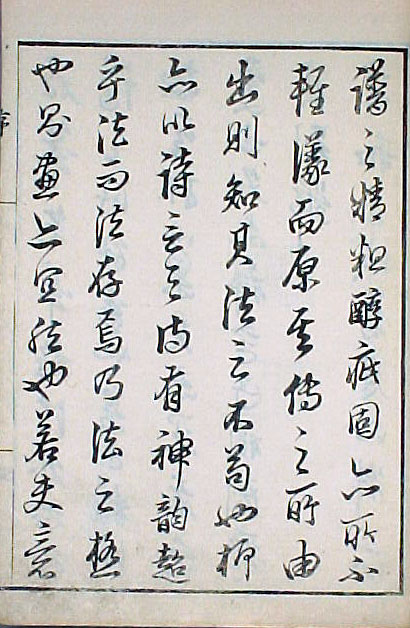 譜之精粗醇疵固亦所不
輕議而原其傳之所由
出則知其法之不苟也抑
亦以詩言之詩有神韻超
乎法而法存焉乃法之極
也畫亦宜然也若夫意